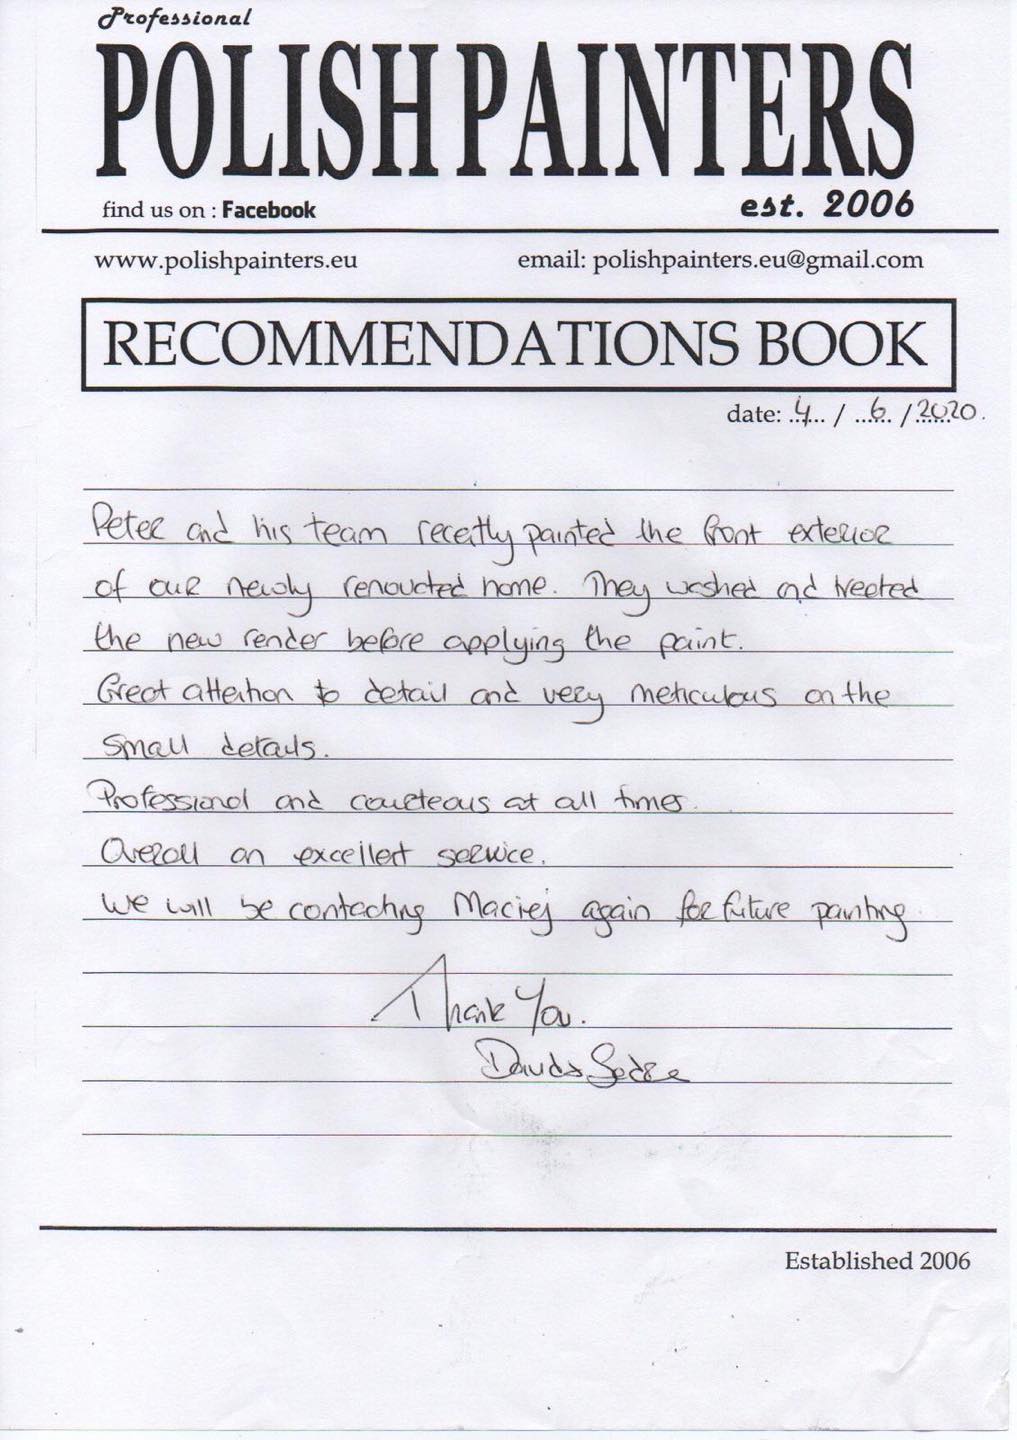 Professional
POLISH PAINTERS
find us on : Facebook
est. 2006
www.polishpainters.eu
email: polishpainters.eu@gmail.com
RECOMMENDATIONS BOOK
date: 4 / 6 / 2020.
Peter and his team recently painted the front exterior
of our newly renovated home. They washed and treated
the new render before applying the paint.
Great attention to detail and very meticulous on the
small details.
Professional and courteous at all times.
Overall an excellent service.
We will be contacting Maciej again for future painting.
Thank You.
Established 2006